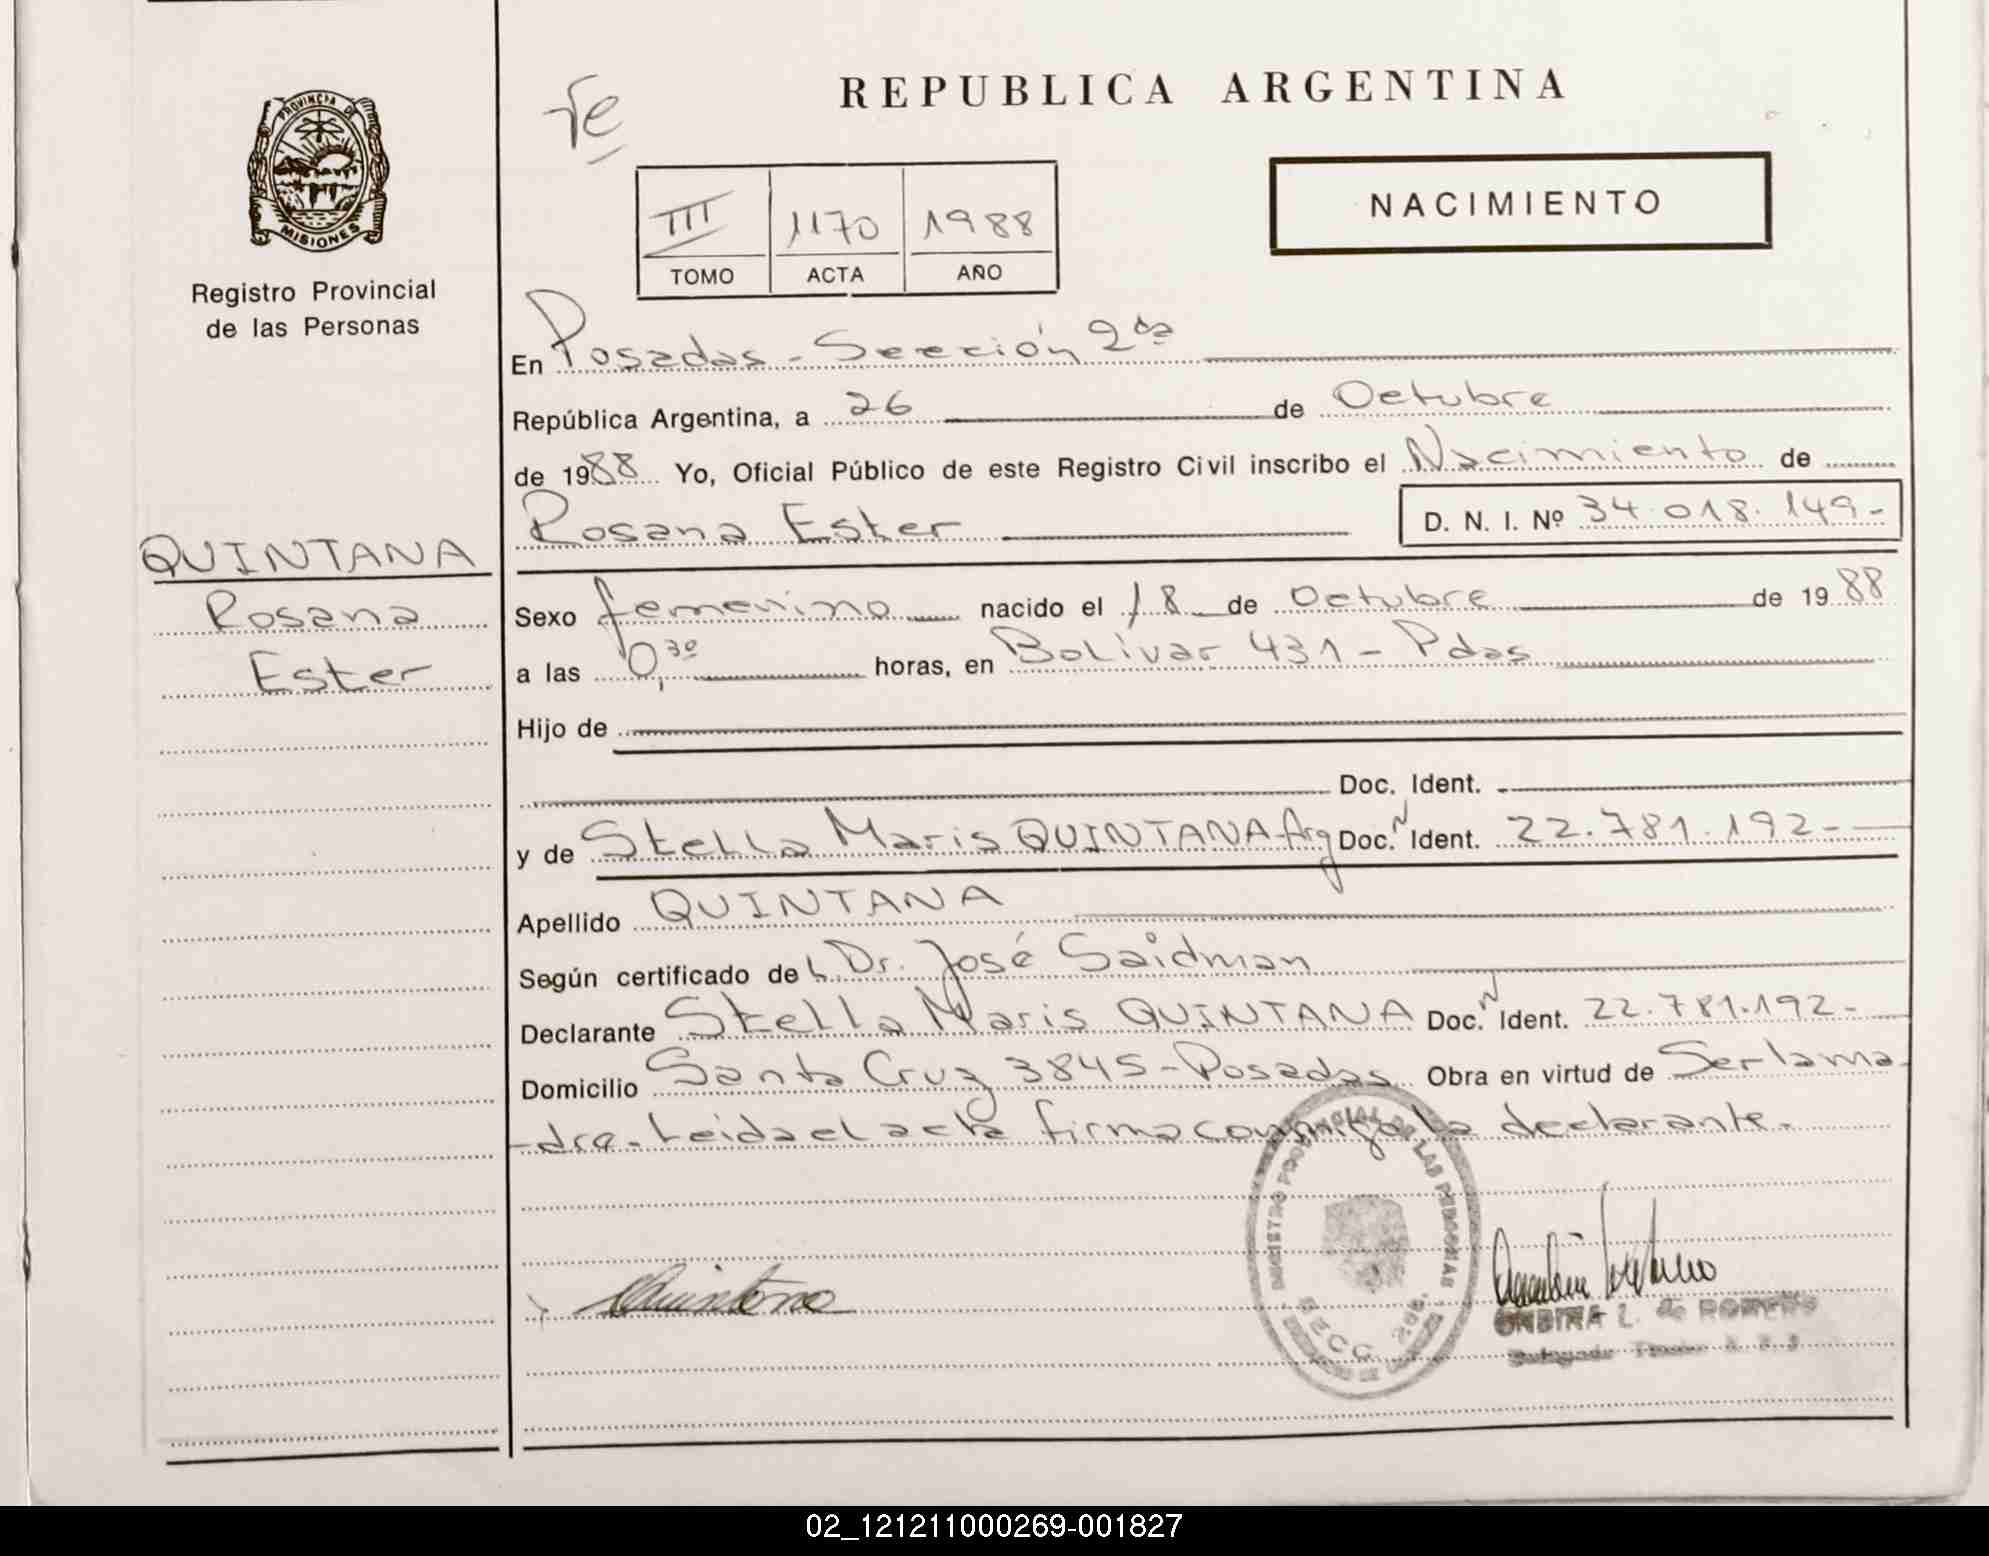 REPUBLICA ARGENTINA
PROVINCIA DE
MISIONES
Registro Provincial
de las Personas
NACIMIENTO
III 1170 1988
TOMO ACTA AÑO
En Posadas - Sección 2da
República Argentina, a 26 de Octubre
de 1988 Yo, Oficial Público de este Registro Civil inscribo el Nacimiento de
Rosana Ester D. N. I. Nº 34.018.149-
QUINTANA
Rosana
Ester
Sexo femenino nacido el 18 de Octubre de 1988
a las 0,30 horas, en Bolívar 431 - Pdas
Hijo de
Doc. Ident.
y de Stella Maris QUINTANA Arg Doc. N Ident. 22.781.192-
Apellido QUINTANA
Según certificado de Dr. José Saidman
Declarante Stella Maris QUINTANA Doc. N Ident. 22.781.192-
Domicilio Santa Cruz 3845 - Posadas Obra en virtud de Ser la ma-
-dre. Leida el acta firma conmigo la declarante.
REGISTRO PROVINCIAL DE LAS PERSONAS
SECC. 2da.
Quintana
L. de ROMERO
02_121211000269-001827